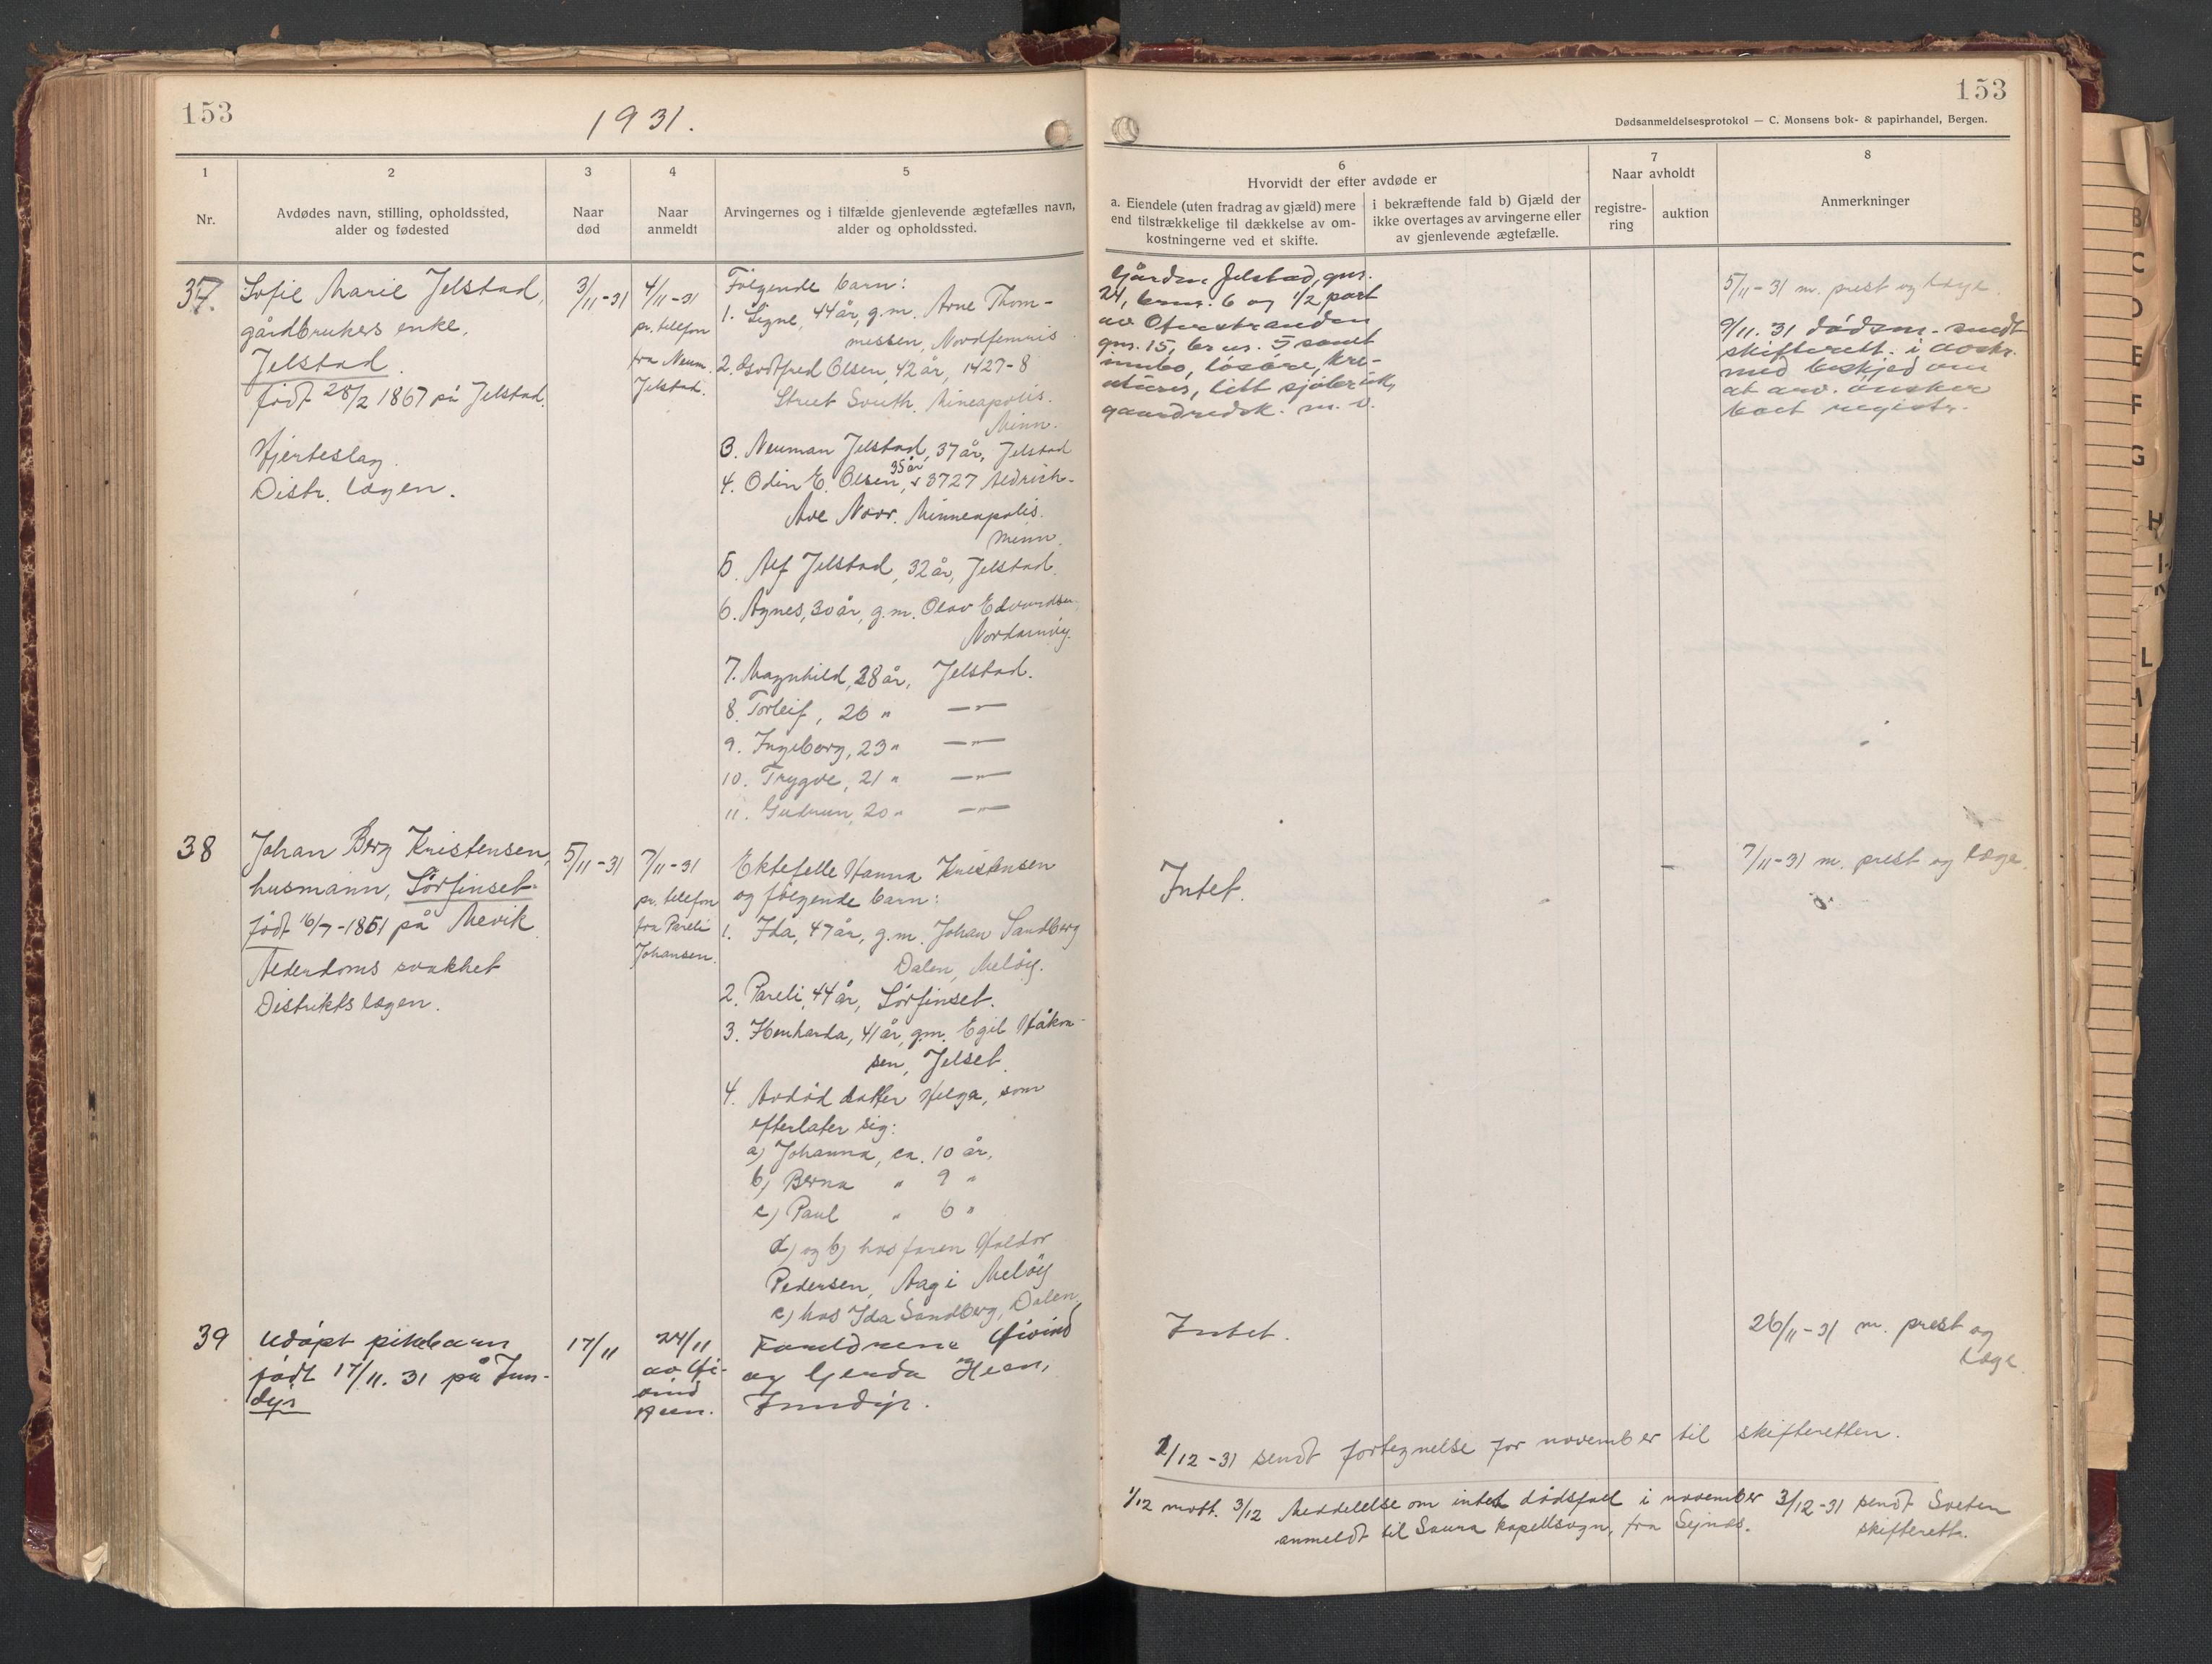 153
1931.
1
2
3
4
5
Nr.
Avdødes navn, stilling, opholdssted,
alder og fødested
Naar
død
Naar
anmeldt
Arvingernes og i tilfælde gjenlevende ægtefælles navn,
alder og opholdssted.
37.
Sofie Marie Jelstad,
gårdbrukers enke,
Jelstad.
født 28/2 1867 på Jelstad.
Hjerteslag.
Distr. lægen.
3/11-31
4/11-31
pr. telefon
fra Neum.
Jelstad.
Følgende barn:
1. Signe, 44 år, g.m. Arne Thom-
messen, Nordfernris
2. Godtfred Olsen, 42 år, 1427-8
Street South. Mineapolis.
Minn.
3. Neuman Jelstad, 37 år, Jelstad
35 år
4. Odin E. Olsen, 3727 Aldrich-
Ave Norr. Minneapolis.
Minn.
5. Alf Jelstad, 32 år, Jelstad.
6. Agnes, 30 år, g.m. Olav Edvardsen
Nordarnøy.
7. Magnhild, 28 år, Jelstad.
8. Torleif, 26 " —"—
9. Ingeborg, 23 " —"—
10. Trygve, 21 " —"—
11. Gudrun, 20 " —"—
38
Johan Berg Kristensen,
husmann, Sørfinset.
født 16/7-1851 på Mevik
Alderdoms svakhet
Distriktslægen.
5/11-31
7/11-31
pr. telefon
fra Pareli
Johansen.
Ektefelle Hanna Kristensen
og følgende barn:
1. Ida, 47 år, g.m. Johan Sandberg
Dalen, Meløy.
2. Pareli, 44 år, Sørfinset.
3. Henharda, 41 år, g.m. Egil Håkon-
sen, Jelset.
4. Avdød datter Helga, som
efterlater sig:
a) Johanna, ca. 10 år,
b) Berna " 9 "
c) Paul " 6 "
a) og b) hos faren Haldor
Pedersen, Aag i Meløy
c) hos Ida Sandberg, Dalen.
39
Udøpt pikebarn
født 17/11. 31 på Inn-
dyr
17/11
24/11
av Øi-
vind
Heen.
Foreldrene Øivind
og Gerda Heen,
Inndyr.
153
Dødsanmeldelsesprotokol — C. Monsens bok- & papirhandel, Bergen.
6
Hvorvidt der efter avdøde er
a. Eiendele (uten fradrag av gjæld) mere
end tilstrækkelige til dækkelse av om-
kostningerne ved et skifte.
i bekræftende fald b) Gjæld der
ikke overtages av arvingerne eller
av gjenlevende ægtefælle.
7
Naar avholdt
registre-
ring
auktion
8
Anmerkninger
Gården Jelstad, gnr.
24, brnr. 6 og 1/2 part
av Oterstranden
gnr. 15, br nr. 5 samt
innbo, løsøre, kre-
aturer, litt sjøbruk,
gaardredsk. m. v.
5/11-31 m. prest og læge.
9/11. 31 dødsm. sendt
skifterett. i avskr.
med beskjed om
at arv. ønsker
boet registr.
Intet.
7/11-31 m. prest og læge.
Intet.
26/11-31 m. prest og
læge.
1/12-31 sendt fortegnelse for november til skifteretten.
1/12 mott. 3/12 Meddelelse om intet dødsfall i november 3/12-31 sendt Salten
anmeldt til Saura kapellsogn, fra Sejnæs. skifterett.
B
C
D
E
F
G
H
I-J
K
L